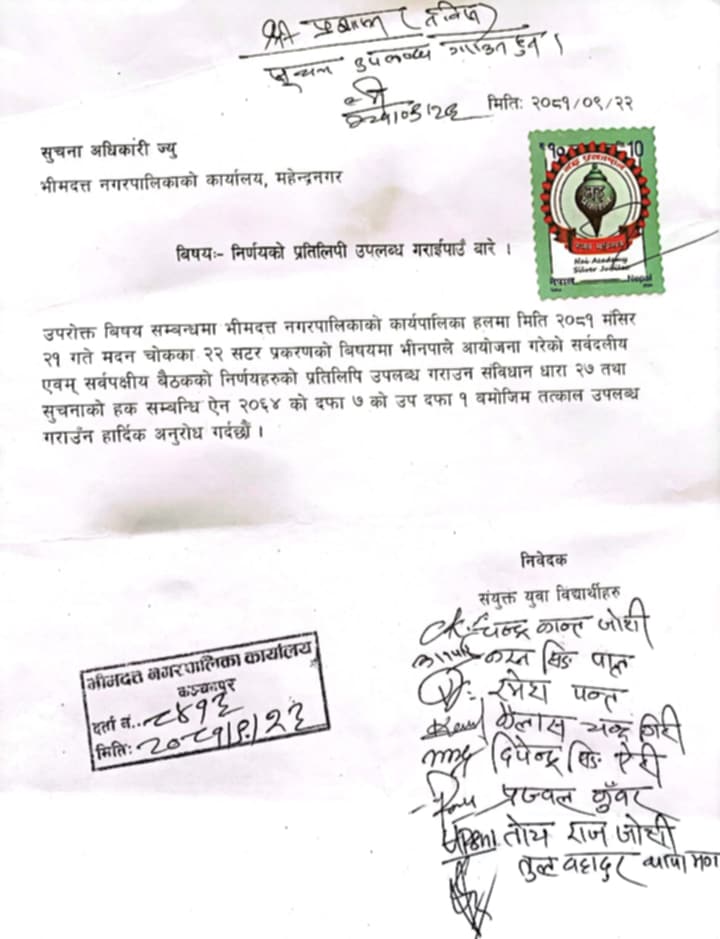 श्री प्रशासन
सूचना उपलब्ध गराउनु हुन ।
मिति: २०८१/०९/२२
सुचना अधिकारी ज्यु
भीमदत्त नगरपालिकाको कार्यालय, महेन्द्रनगर
रु १० Rs. 10
Nai Academy
Silver Jubilee
नेपाल Nepal
विषयः- निर्णयको प्रतिलिपी उपलब्ध गराईपाउँ बारे ।
उपरोक्त बिषय सम्बन्धमा भीमदत्त नगरपालिकाको कार्यपालिका हलमा मिति २०८१ मंसिर
२१ गते मदन चोकका २२ सटर प्रकरणको बिषयमा भीनपाले आयोजना गरेको सर्वदलीय
एवम् सर्वपक्षीय बैठकको निर्णयहरुको प्रतिलिपि उपलब्ध गराउन संविधान धारा २७ तथा
सुचनाको हक सम्बन्धि ऐन २०६४ को दफा ७ को उप दफा १ बमोजिम तत्काल उपलब्ध
गराउँन हार्दिक अनुरोध गर्दछौं ।
निवेदक
संयुक्त युवा विद्यार्थीहरु
चन्द्र कान्त जोशी
सिंह पाल
रमेश पन्त
कैलास चन्द्र गिरी
दिपेन्द्र सिंह ऐरी
प्रज्वल कुँवर
तोय राज जोशी
बहादुर थापा मगर
भीमदत्त नगरपालिका कार्यालय
कञ्चनपुर
दर्ता नं..८४१३
मिति: २०८१/९/२३